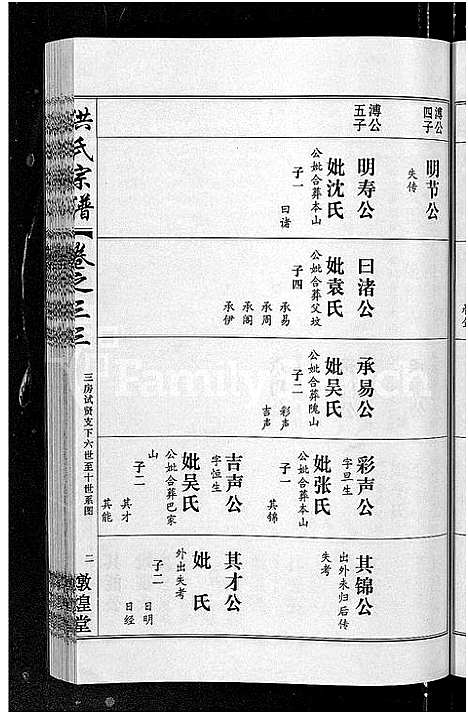 溥公
四子
溥公
五子
明节公
失传
明寿公
妣沈氏
公妣合葬本山
子一
曰诸
曰渚公
妣袁氏
公妣合葬父坟
子四
承易
承周
承阁
承伊
承易公
妣吴氏
公妣合葬隗山
子二
彩声
吉声
彩声公
字旦生
妣张氏
公妣合葬本山
子一
其锦
吉声公
字恒生
妣吴氏
公妣合葬巴家
山
子二
其才
其能
其锦公
出外未归后传
失考
其才公
妣 氏
外出失考
子二
日明
日经
洪氏宗谱
卷之三三
三房试贤支下六世至十世系图
二
敦煌堂
FamilySearch